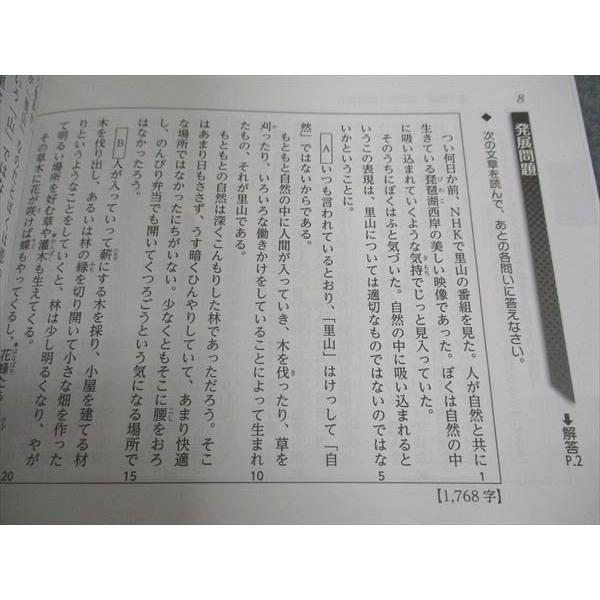 8
発展問題
➡解答 P.2
◆ 次の文章を読んで、あとの各問いに答えなさい。
【1,768字】
つい何日か前、NHKで里山の番組を見た。人が自然と共に
生きている琵琶湖西岸の美しい映像であった。ぼくは自然の中
に吸い込まれていくような気持でじっと見入っていた。
そのうちにぼくはふと気づいた。自然の中に吸い込まれると
いうこの表現は、里山については適切なものではないのではな
いかということに。
A いつも言われているとおり、「里山」はけっして「自
然」ではないからである。
もともと自然の中に人間が入っていき、木を伐ったり、草を
刈ったり、いろいろな働きかけをしていることによって生まれ
たもの、それが里山である。
もともとの自然は深くこんもりした林であっただろう。そこ
はあまり日もささず、うす暗くひんやりしていて、あまり快適
な場所ではなかったにちがいない。少なくともそこに腰をおろ
し、のんびり弁当でも開いてくつろごうという気になる場所で
はなかったろう。
B 人が入っていって薪にする木を採り、小屋を建てる材
木を伐り出し、あるいは林の縁を切り開いて小さな畑を作った
りというようなことをしていくと、林は少し明るくなり、やが
て明るい場所を好む草や灌木も生えてくる。
その草木に花が咲けば蝶もやってくるし、花蜂